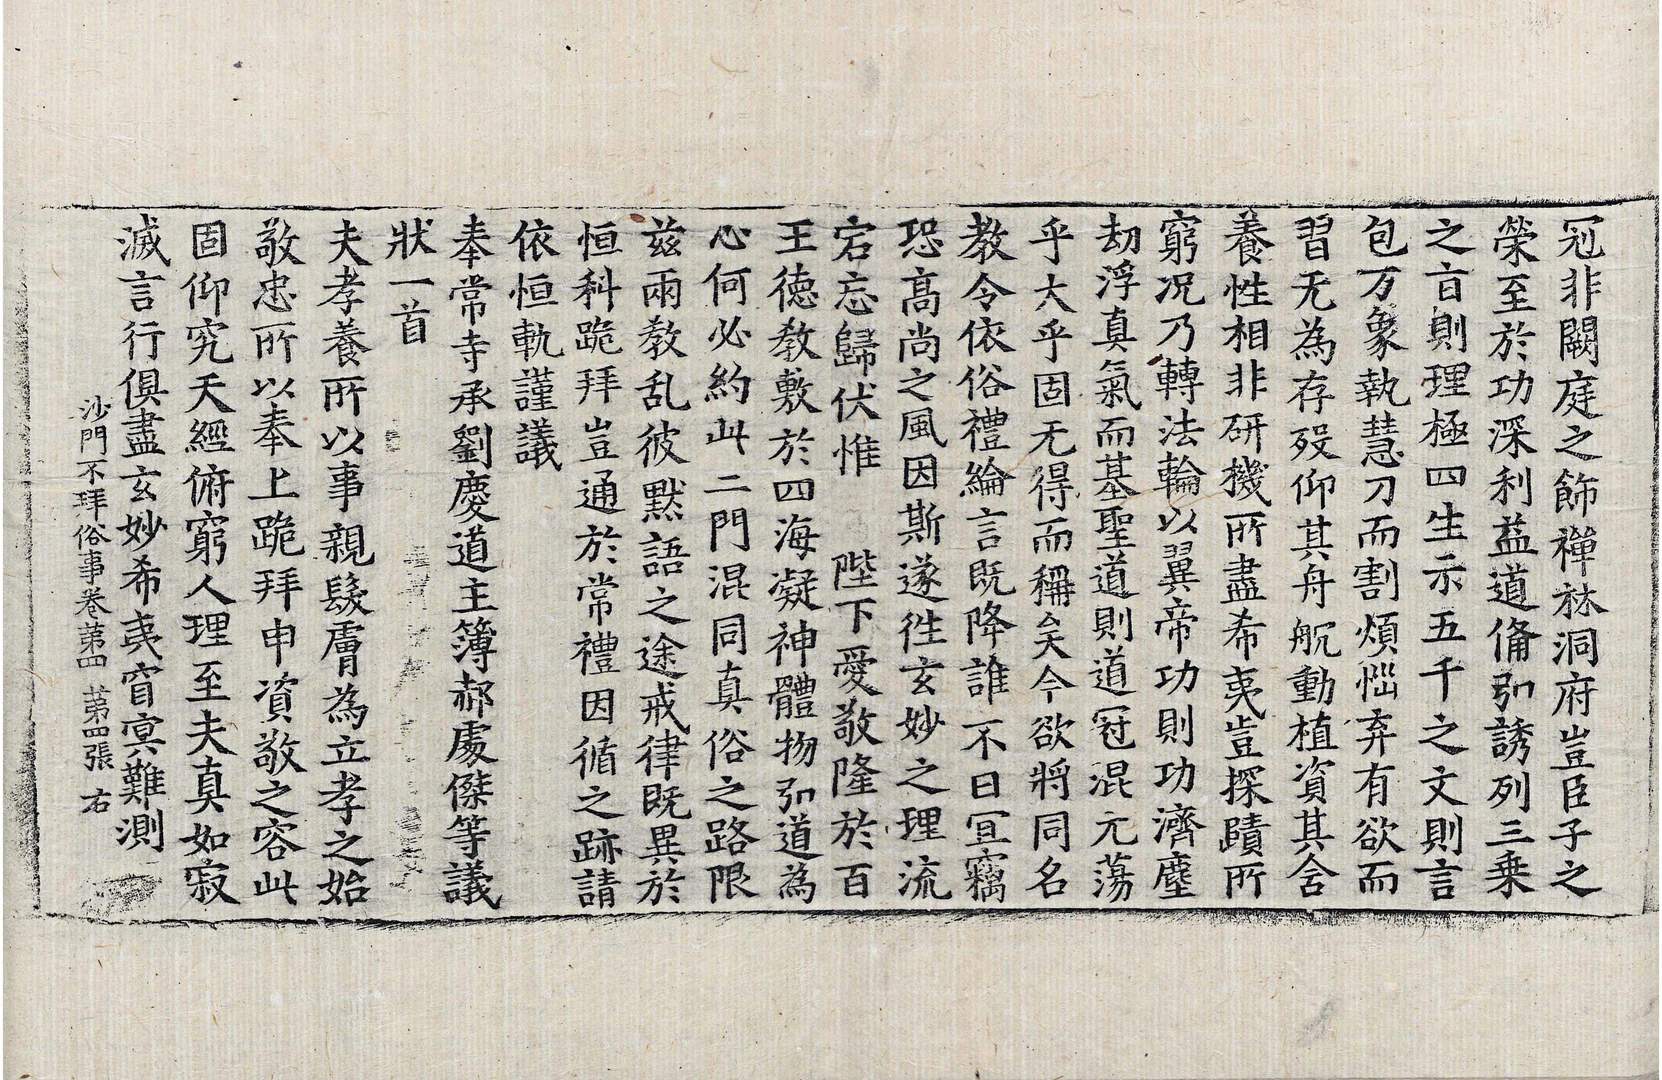 冠非闕庭之飾禪林洞府豈臣子之
榮至於功深利益道俻弘誘列三乗
之㫖則理極四生示五千之文則言
包万象執慧刀而割煩惱弃有欲而
習无為存歿仰其舟航動植資其含
養性相非研機所盡希夷豈探賾所
窮况乃轉法輪以翼帝功則功濟塵
劫浮真氣而基聖道則道冠混元蕩
乎大乎固无得而稱矣今欲將同名
教令依俗禮綸言既降誰不曰宜竊
恐高尚之風因斯遂往玄妙之理流
宕忘歸伏惟　陛下愛敬隆於百
王德教敷於四海凝神體物弘道為
心何必約此二門混同真俗之路限
茲兩教乱彼默語之途戒律既異於
恒科跪拜豈通於常禮因循之跡請
依恒軌謹議
奉常寺承劉慶道主簿郝處傑等議
狀一首
夫孝養所以事親髮膚為立孝之始
敬忠所以奉上跪拜申資敬之容此
固仰究天經俯窮人理至夫真如寂
滅言行俱盡玄妙希夷窅冥難測
沙門不拜俗事卷苐四　苐四張　右